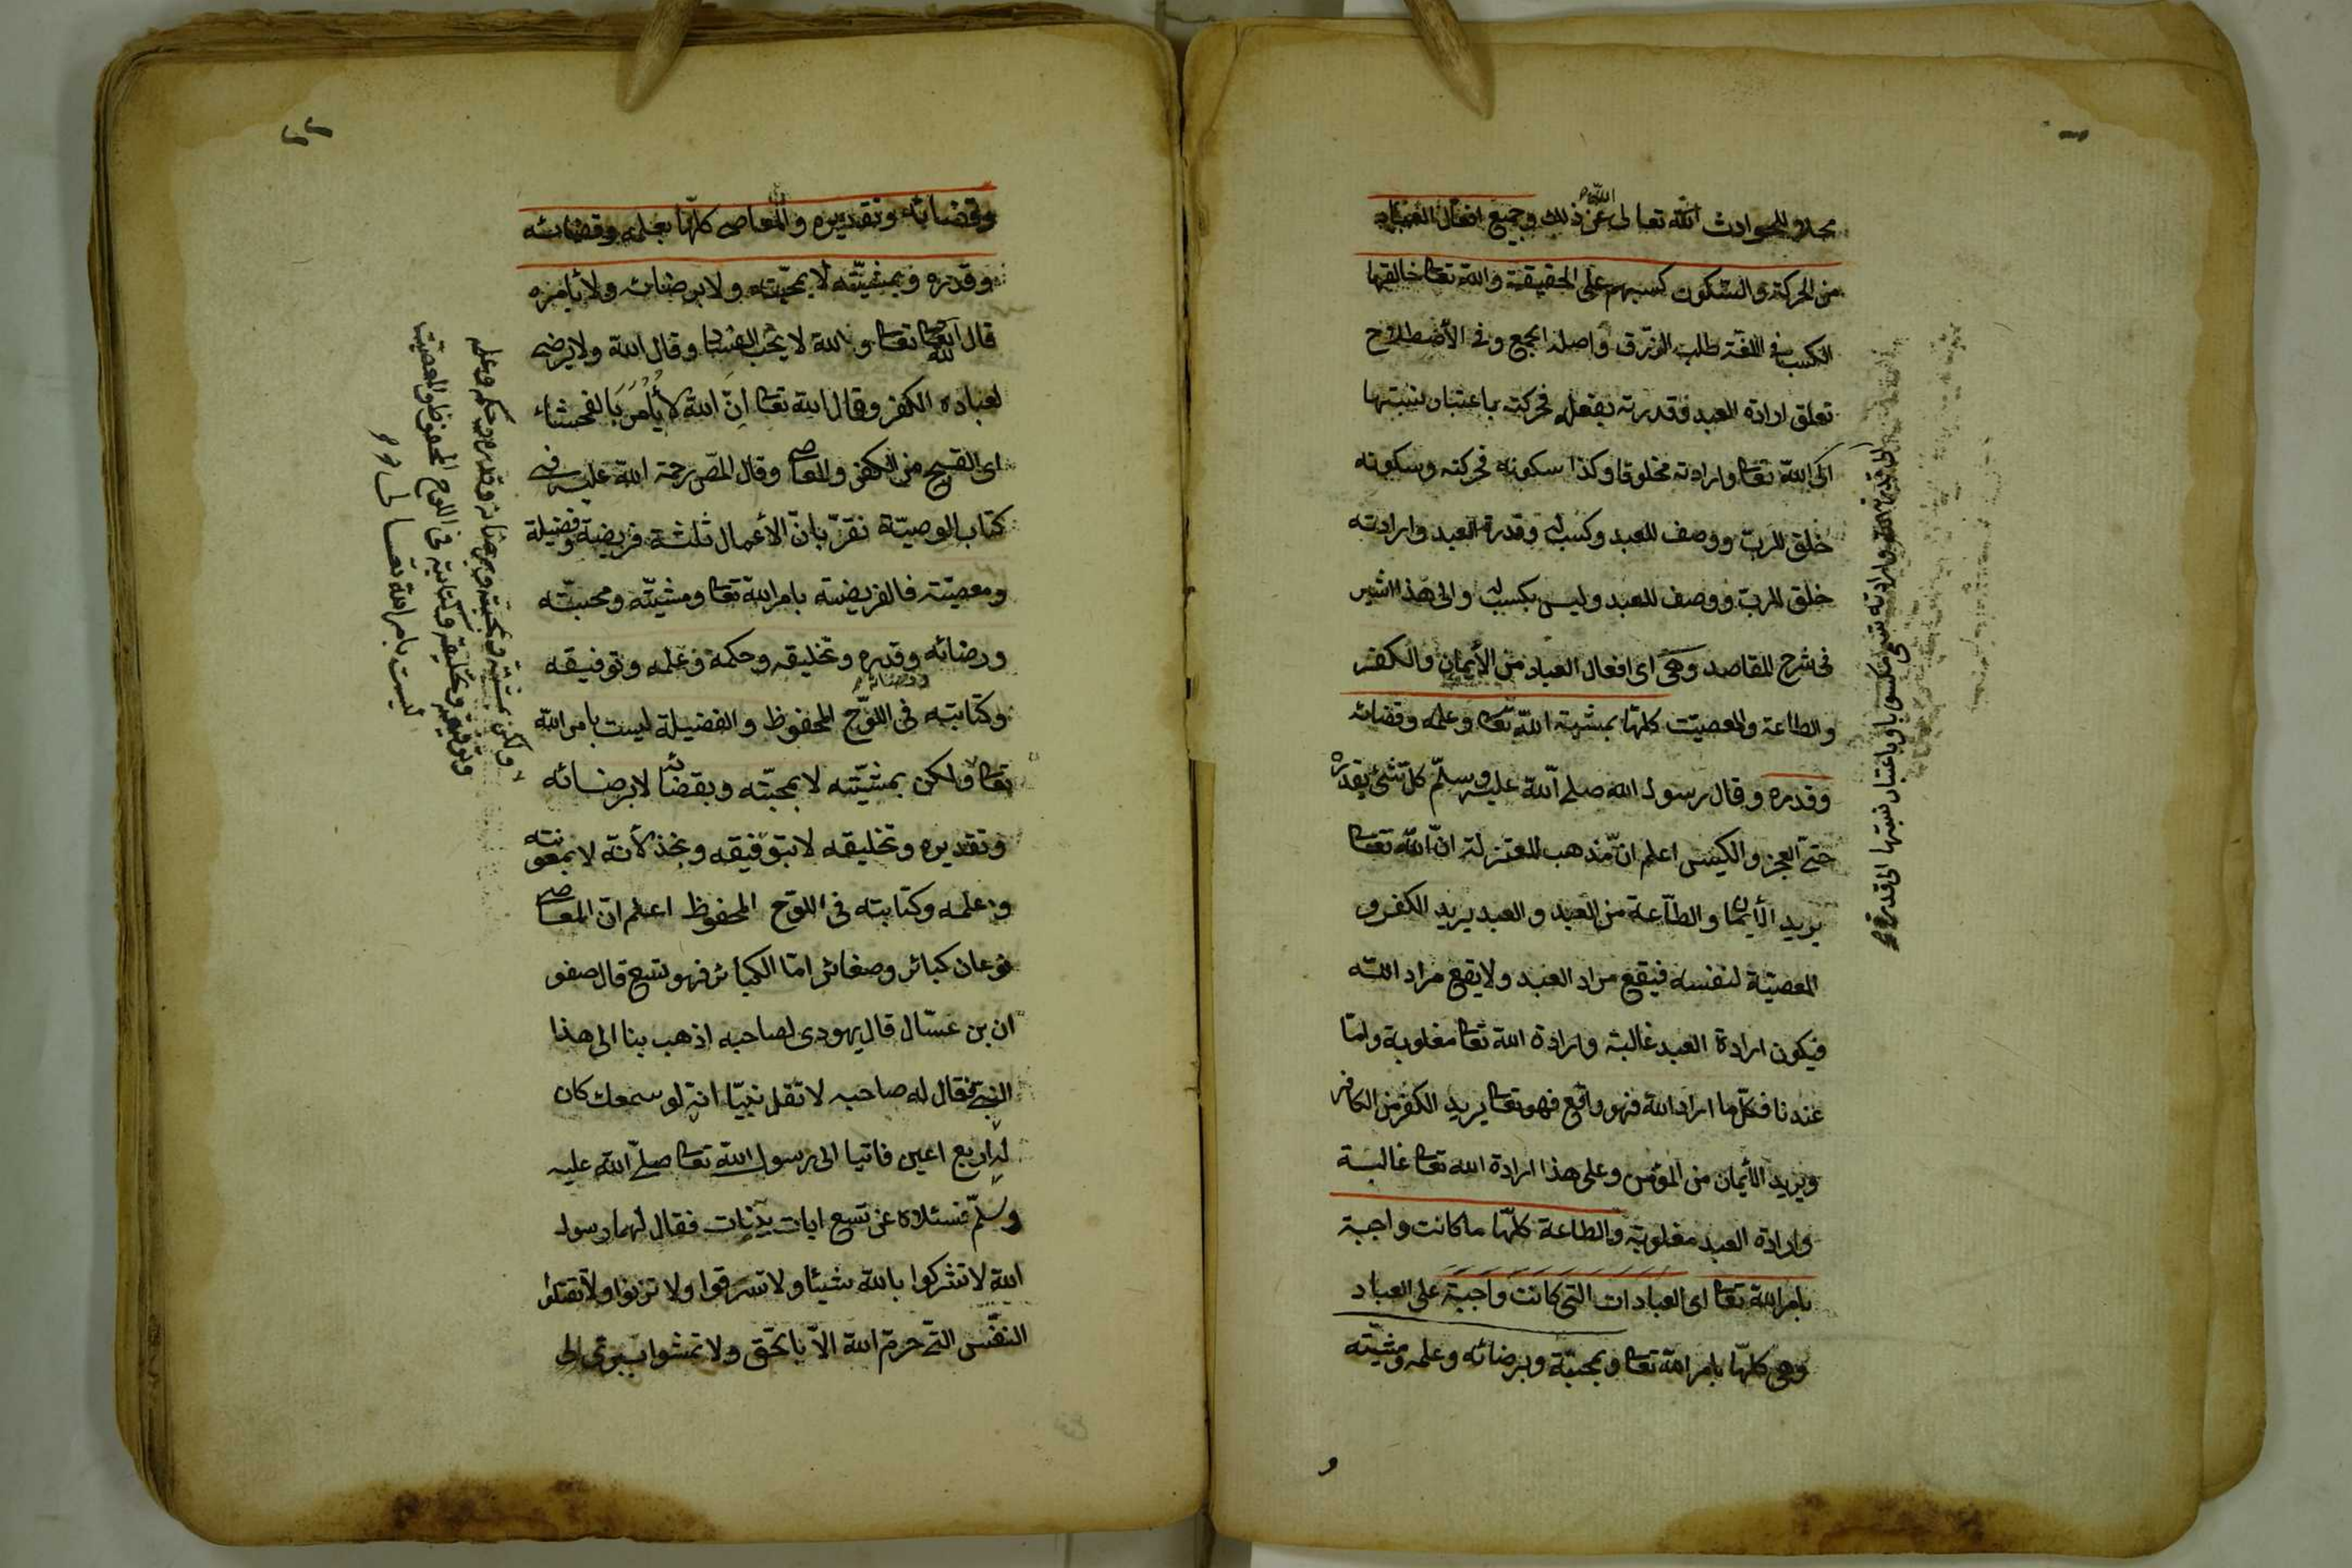 محلا للحوادث الله تعالى عن ذلك وجميع افعال العباد
من الحركة والسكون كسبهم على الحقيقة والله تعا خالقها
الكسب فى اللغة طلب الرزق واصله الجمع وفى الأصطلاح
تعلق ارادة العبد وقدرته بفعله فحركته باعتبار نسبتها
الى الله تعا وارادته مخلوقا وكذا سكونه فحركته وسكونه
خلق للرب ووصف للعبد وكسب له وقدرة العبد وارادته
خلق للرب ووصف للعبد وليس بكسب له والى هذا اشير
فى شرح المقاصد وهى اى افعال العباد من الأيمان والكفر
والطاعة والمعصيت كلها بمشية الله تعا وعلمه وقضائه
وقدره وقال رسول الله صلى الله عليه وسلم كل شئ بقدره
حتى العجز والكيس اعلم ان مذهب المعتزلة ان الله تعا
يريد الأيمان والطاعة من العبد والعبد يريد الكفر و
المعصية لنفسه فيقع مراد العبد ولا يقع مراد الله
فيكون ارادة العبد غالبة وارادة الله تعا مغلوبة واما
عندنا فكل ما اراد الله فهو واقع فهو تعا يريد الكفر من الكافر
ويريد الأيمان من المؤمن وعلى هذا ارادة الله تعا غالبة
وارادة العبد مغلوبة والطاعة كلها ما كانت واجبة
بامر الله تعا اى العبادات التى كانت واجبة على العباد
وهى كلها بامر الله تعا وبمحبته وبرضائه وعلمه ومشيته
و
الى قدرة الله وارادته تسمى وباعتبار نسبتها الى قدرة
٢٢
وقضائه وتقديره والمعاصى كلها بعلمه وقضائه
وقدره وبمشيته لا بمحبته ولا برضائه ولا بامره
قال الله تعا والله لا يحب الفساد وقال الله ولا يرضى
لعباده الكفر وقال الله تعا ان الله لا يأمر بالفحشاء
اى القبيح من الكفر والمعاصى وقال المص رحمة الله عليه فى
كتاب الوصية نقر بان الأعمال ثلثة فريضة وفضيلة
ومعصية فالفريضة بامر الله تعا ومشيته ومحبته
ورضائه وقدره وتخليقه وحكمه وعلمه وتوفيقه
وكتابته فى اللوح المحفوظ والفضيلة ليست بامر الله
تعا ولكن بمشيته لا بمحبته وبقضائه لا برضائه
وتقديره وتخليقه لا بتوفيقه وبخذلانه لا بمعونته
وعلمه وكتابته فى اللوح المحفوظ اعلم ان المعاصى
نوعان كبائر وصغائر اما الكبائر فهو تسع قال صفو
ان بن عسال قال يهودى لصاحبه اذهب بنا الى هذا
النبى فقال له صاحبه لا تقل نبيا انه لو سمعك كان
له اربع اعين فاتيا الى رسول الله تعا صلى الله عليه
وسلم فسئلاه عن تسع ايات بينات فقال لهما رسول
الله لا تشركوا بالله شيئا ولا تسرقوا ولا تزنوا ولا تقتلوا
النفس التى حرم الله الا بالحق ولا تمشوا ببرئ الى
ولكن بمشيته وبمحبته وبرضائه وقدره وحكم وعلم
وتوفيقه وتخليقه وكتابته فى اللوح المحفوظ والمعصيت
ليست بامر الله تعالى